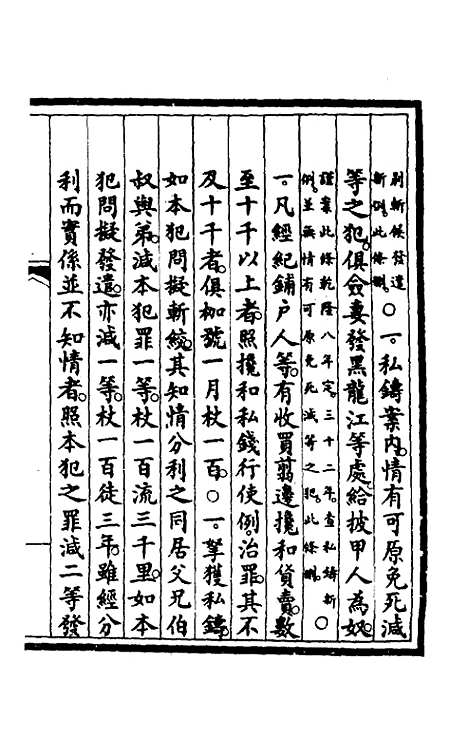 則斬候發遣
新例此條刪○一私鑄案內情有可原免死減
等之犯俱僉妻發黑龍江等處給披甲人為奴
謹案此條乾隆八年定三十二年查私鑄新
例並無情有可原免死減等之犯此條刪○
一凡經紀鋪户人等有收買翦邊攙和貨賣數
至十千以上者照攙和私錢行使例治罪其不
及十千者俱枷號一月杖一百○一拏獲私鑄
如本犯問擬斬絞其知情分利之同居父兄伯
叔與弟減本犯罪一等杖一百流三千里如本
犯問擬發遣亦減一等杖一百徒三年雖經分
利而實係並不知情者照本犯之罪減二等發